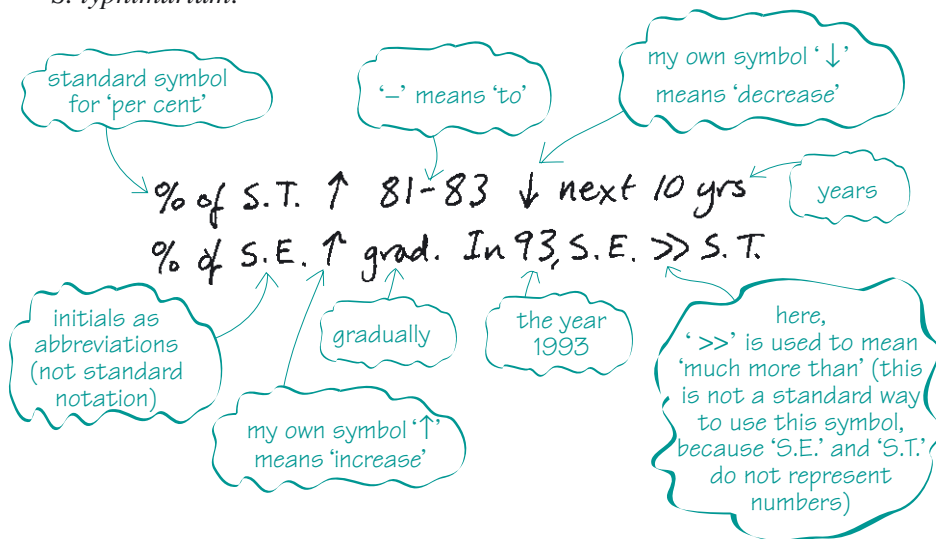 S. typhimurium.
standard symbol
for 'per cent'
'–' means 'to'
my own symbol '↓'
means 'decrease'
% of S.T. ↑ 81–83 ↓ next 10 yrs
years
% of S.E. ↑ grad. In 93, S.E. >> S.T.
initials as
abbreviations
(not standard
notation)
gradually
the year
1993
my own symbol '↑'
means 'increase'
here,
'>>' is used to mean
'much more than' (this
is not a standard way
to use this symbol,
because 'S.E.' and 'S.T.'
do not represent
numbers)